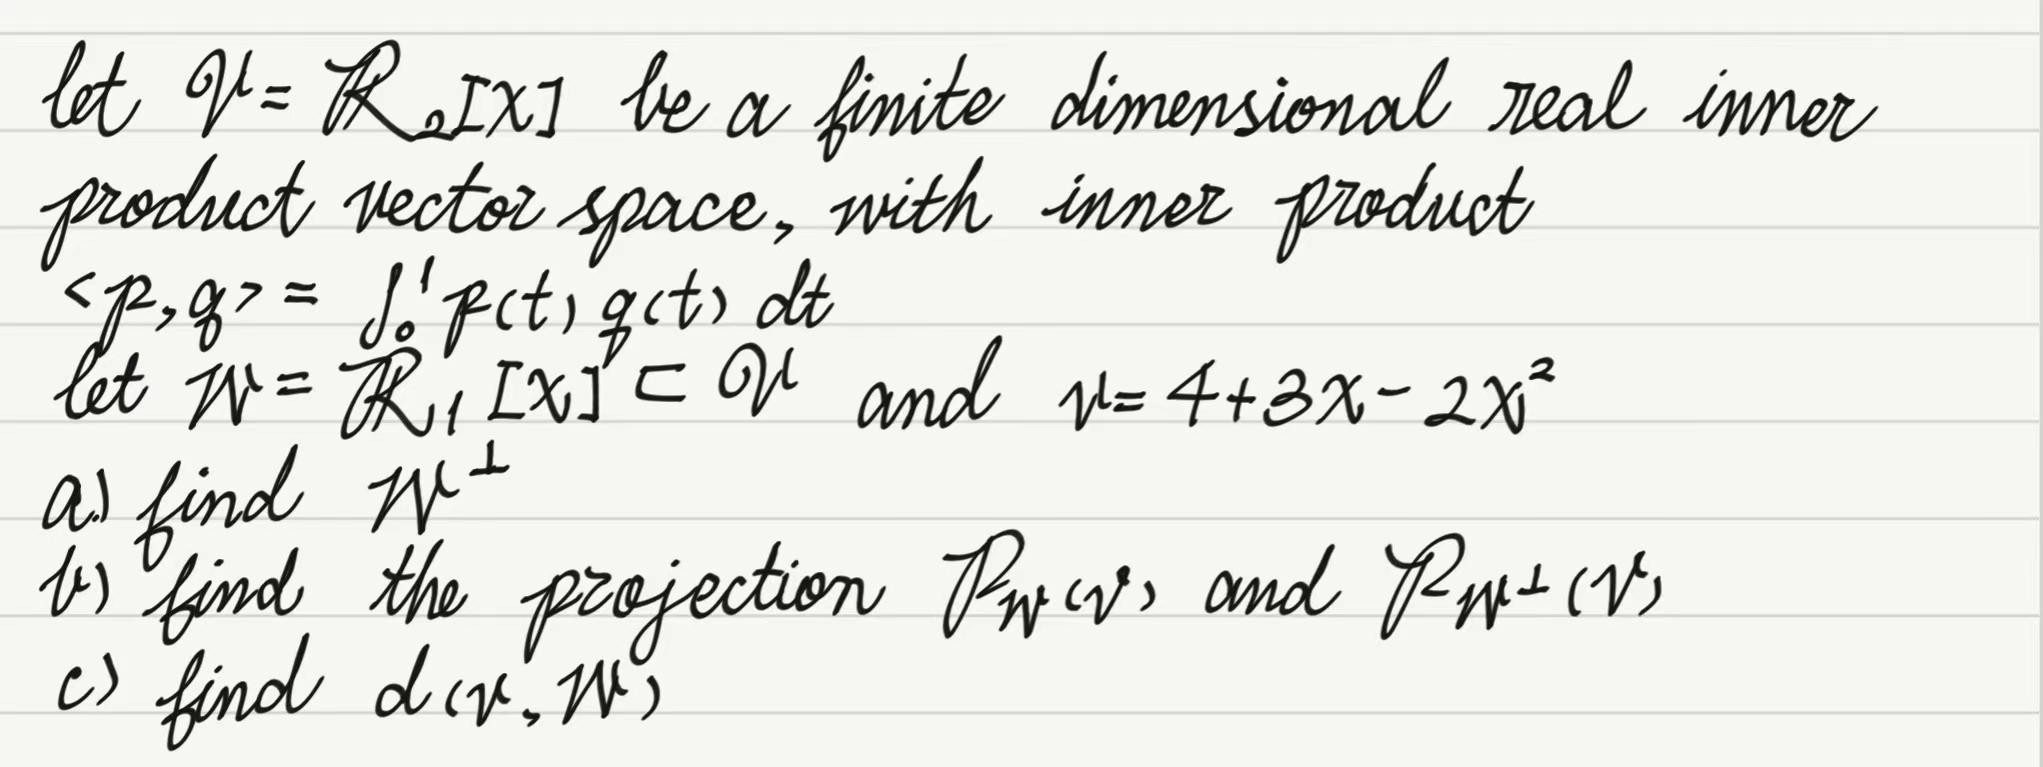 let V = ℝ₂[x] be a finite dimensional real inner
product vector space, with inner product
<p,q> = ∫₀¹ p(t) q(t) dt
let W = ℝ₁[x] ⊂ V and v = 4+3x-2x²
a.) find W^⊥
b) find the projection P_W(v) and P_W^⊥(v)
c) find d(v, W)